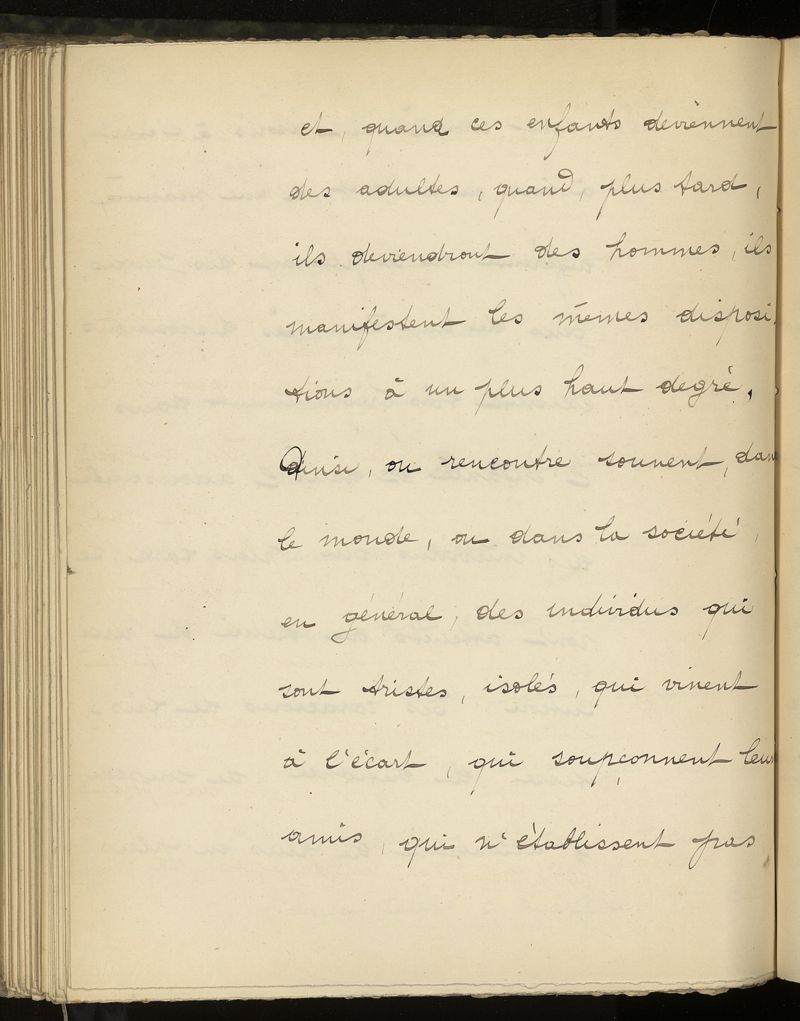 et, quand ces enfants deviennent
des adultes, quand, plus tard,
ils deviendront des hommes, ils
manifestent les mêmes disposi
tions à un plus haut degré.
Ainsi, on rencontre souvent, dans
le monde, ou dans la société,
en général, des individus qui
sont tristes, isolés, qui vivent
à l'écart, qui soupçonnent leurs
amis, qui n'établissent pas